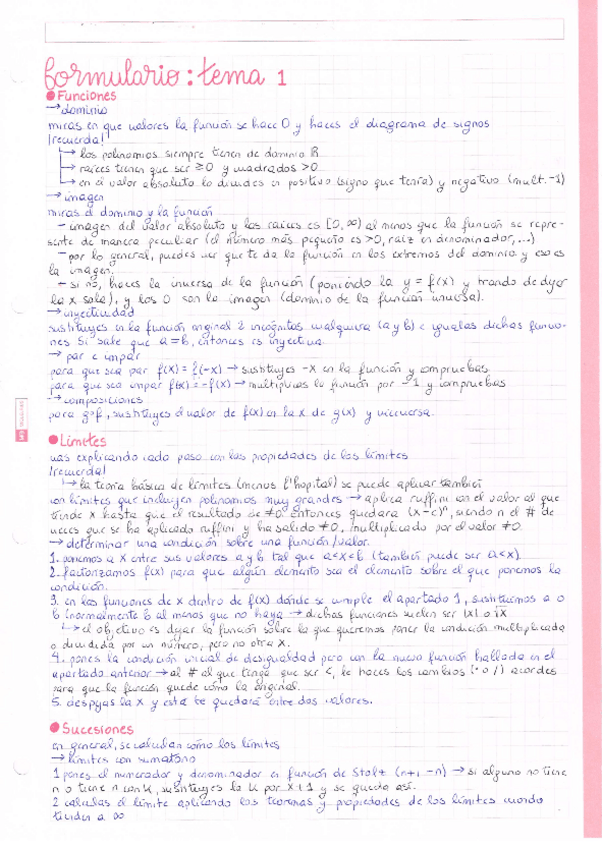 formulario: tema 1
Funciones
→ dominio
miras en que valores la función se hace 0 y haces el diagrama de signos
¡recuerda!
→ los polinomios siempre tienen de dominio R
→ raíces tienen que ser ≥0 y cuadrados >0
→ en el valor absoluto lo divides en positivo (signo que tenía) y negativo (mult. -1)
→ imagen
miras el dominio y la función
- imagen del valor absoluto y las raíces es [0,∞) al menos que la función se repre-
sente de manera peculiar (el número más pequeño es >0, raíz en denominador, ...)
- por lo general, puedes ver que te da la función en los extremos del dominio y eso es
la imagen.
- si no, haces la inversa de la función (poniendo la y = f(x) y tratando de dejar
la x sola), y los 0 son la imagen (dominio de la función inversa).
→ inyectividad
sustituyes en la función original 2 incógnitas cualquiera (a y b) e igualas dichas funcio-
nes. Si sale que a=b, entonces es inyectiva.
→ par e impar
para que sea par f(x) = f(-x) → sustituyes -x en la función y compruebas
para que sea impar f(x) = -f(x) → multiplicas la función por -1 y compruebas
→ composiciones
para g∘f, sustituyes el valor de f(x) en la x de g(x) y viceversa.
Límites
vas explicando cada paso con las propiedades de los límites
¡recuerda!
→ la teoría básica de límites (menos l'hopital) se puede aplicar también
con límites que incluyen polinomios muy grandes → aplica ruffini con el valor al que
tiende x hasta que el resultado de ≠0. entonces quedará (x-c)ⁿ, siendo n el # de
veces que se ha aplicado ruffini y ha salido ≠0, multiplicado por el valor ≠0.
→ determinar una condición sobre una función/valor.
1. ponemos a x entre sus valores a y b tal que a<x<b (también puede ser a<x).
2. factorizamos f(x) para que algún elemento sea el elemento sobre el que ponemos la
condición.
3. en las funciones de x dentro de f(x) donde se cumple el apartado 1, sustituimos a o
b (normalmente b al menos que no haya → dichas funciones suelen ser |x| o √x
→ el objetivo es dejar la función sobre la que queremos poner la condición multiplicada
o dividida por un número, pero no otra x.
4. pones la condición inicial de desigualdad pero con la nueva función hallada en el
apartado anterior → al # al que tenga que ser <, le haces los cambios (· o /) acordes
para que la función quede como la original.
5. despejas la x y esta te quedará entre dos valores.
Sucesiones
en general, se calculan como los límites
→ límites con sumatorio
1 pones el numerador y denominador en función de Stolz (n+1 - n) → si alguno no tiene
n o tiene n con k, sustituyes la k por x+1 y se queda así.
2 calculas el límite aplicando los teoremas y propiedades de los límites cuando
tienden a ∞